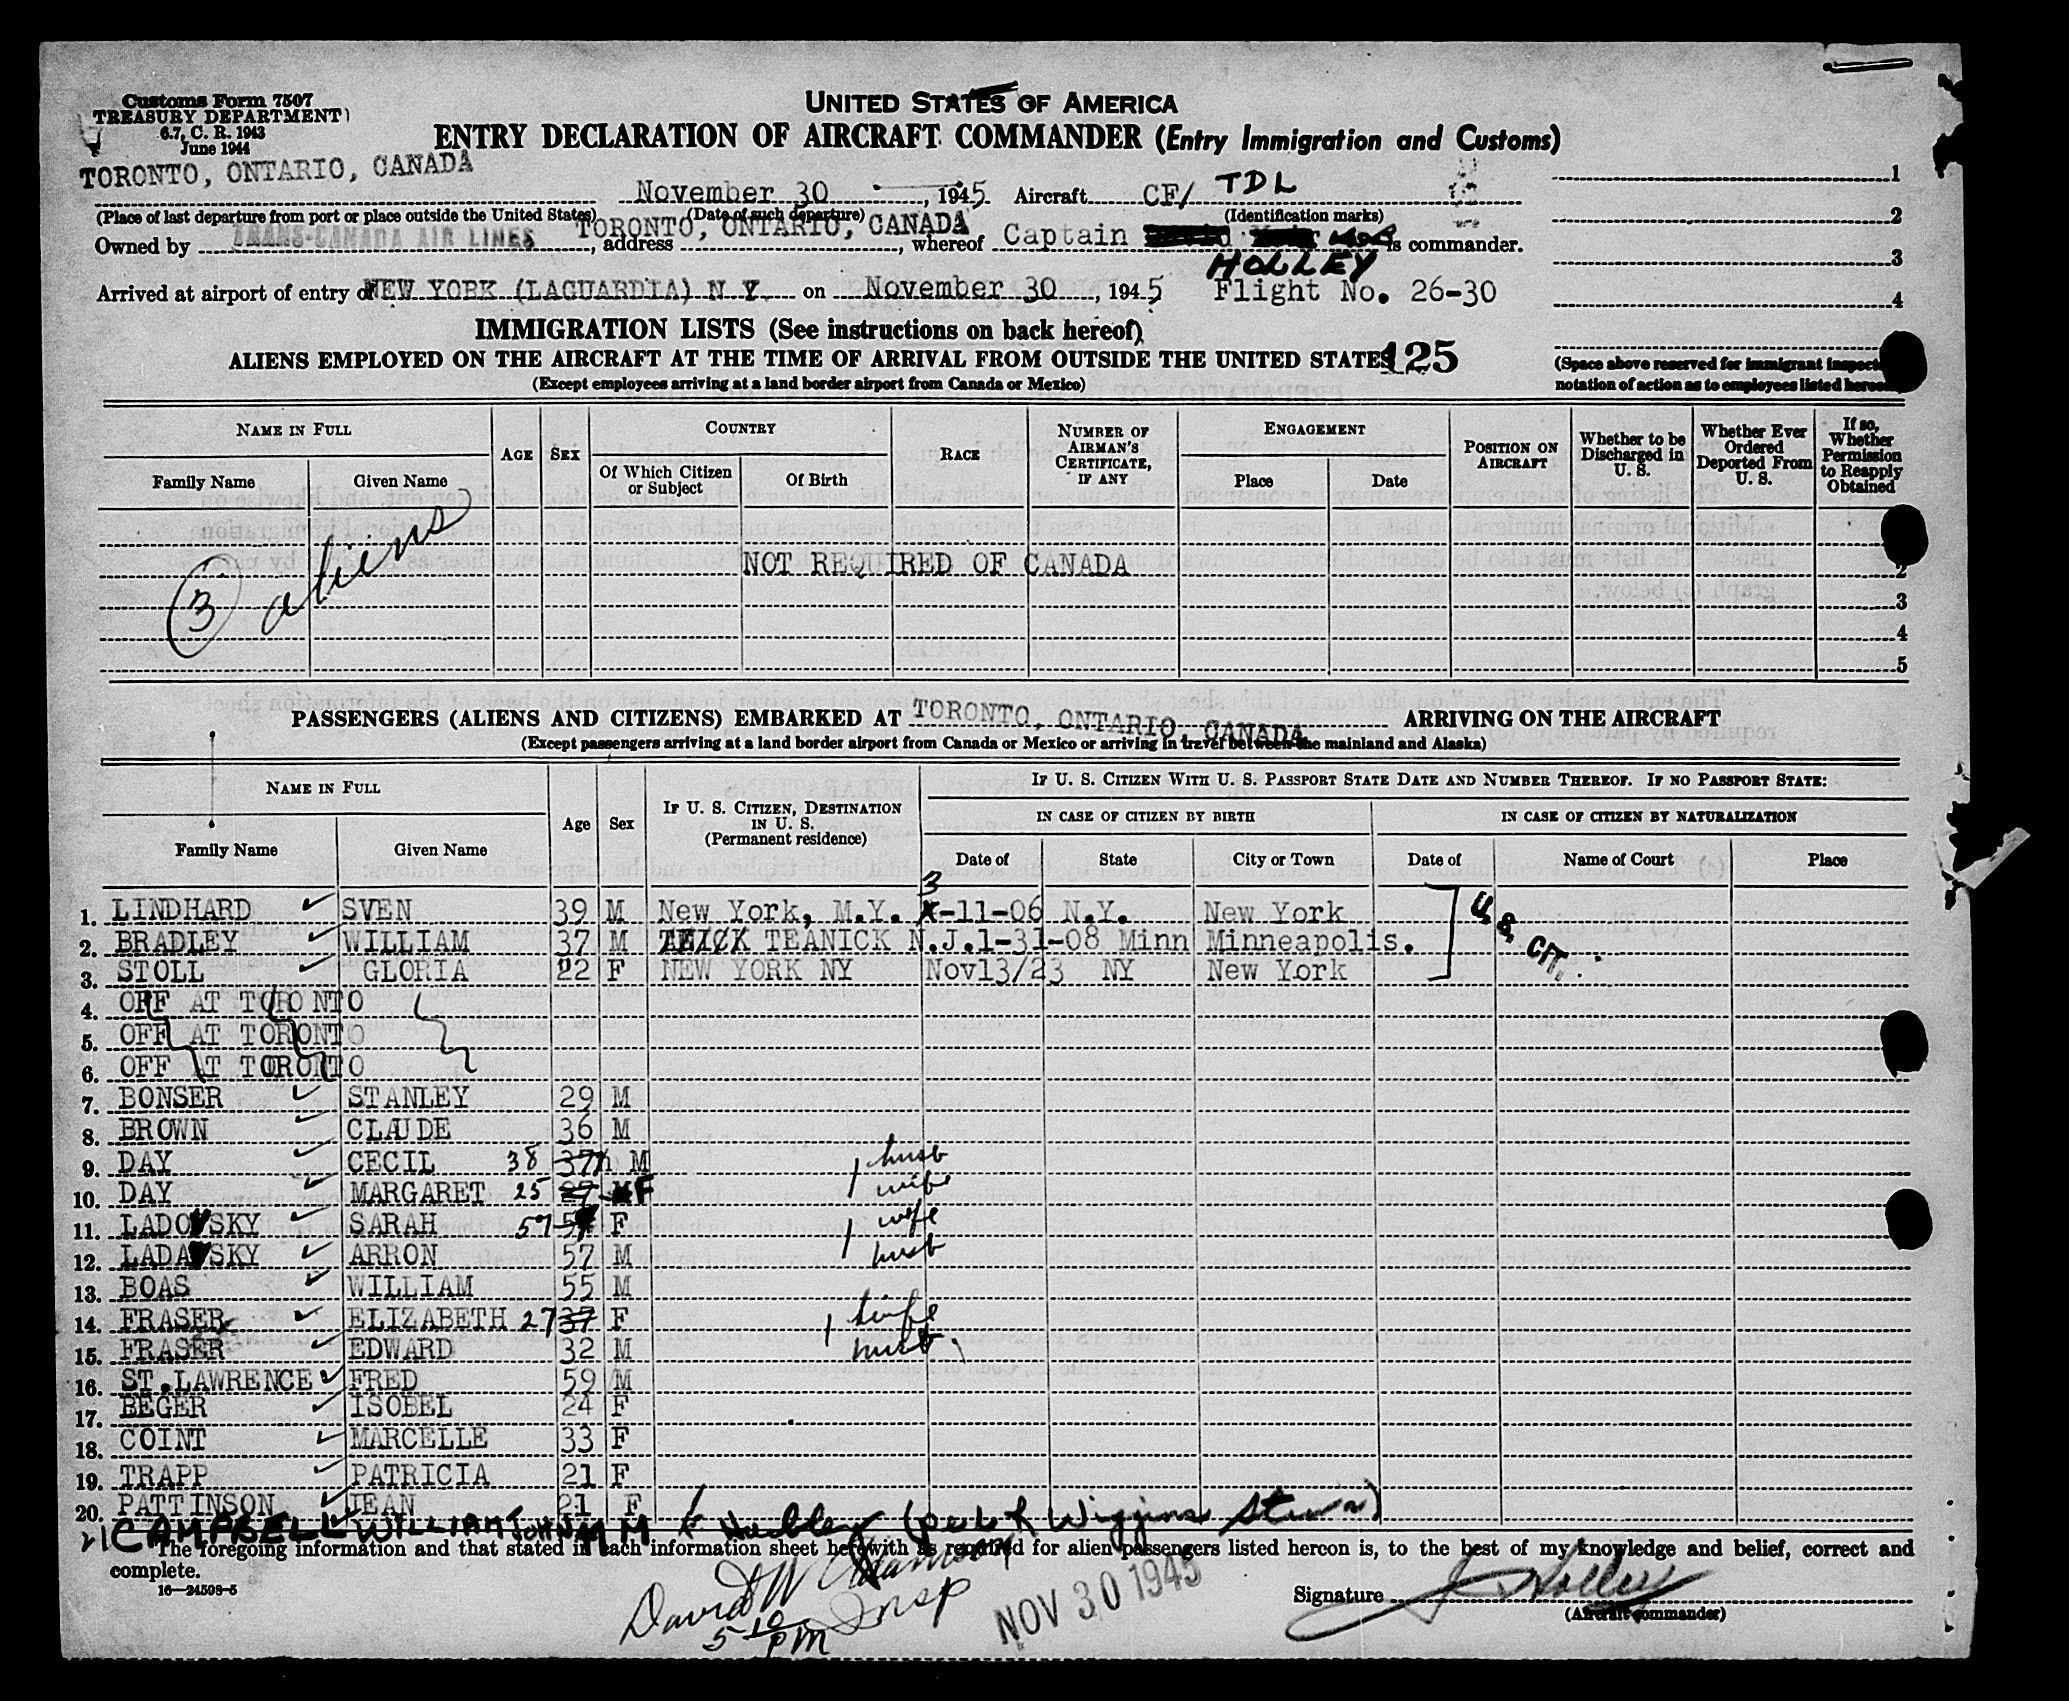 Customs Form 7507
TREASURY DEPARTMENT
6.7, C. R. 1943
June 1944
UNITED STATES OF AMERICA
ENTRY DECLARATION OF AIRCRAFT COMMANDER (Entry Immigration and Customs)
TORONTO, ONTARIO, CANADA November 30, 1945 Aircraft CF/ TDL
(Place of last departure from port or place outside the United States) (Date of such departure) (Identification marks)
Owned by TRANS-CANADA AIR LINES, address TORONTO, ONTARIO, CANADA, whereof Captain HOLLEY is commander.
Arrived at airport of entry of NEW YORK (LAGUARDIA) N Y. on November 30, 1945 Flight No. 26-30
1
2
3
4
IMMIGRATION LISTS (See instructions on back hereof)
ALIENS EMPLOYED ON THE AIRCRAFT AT THE TIME OF ARRIVAL FROM OUTSIDE THE UNITED STATES 125
(Except employees arriving at a land border airport from Canada or Mexico)
(Space above reserved for immigrant inspect
notation of action as to employees listed hereon
NAME IN FULL AGE SEX COUNTRY RACE NUMBER OF AIRMAN'S CERTIFICATE, IF ANY ENGAGEMENT POSITION ON AIRCRAFT Whether to be Discharged in U. S. Whether Ever Ordered Deported From U. S. If so, Whether Permission to Reapply Obtained
Family Name Given Name Of Which Citizen or Subject Of Birth Place Date
3 aliens
NOT REQUIRED OF CANADA
2
3
4
5
PASSENGERS (ALIENS AND CITIZENS) EMBARKED AT TORONTO, ONTARIO, CANADA ARRIVING ON THE AIRCRAFT
(Except passengers arriving at a land border airport from Canada or Mexico or arriving in travel between the mainland and Alaska)
NAME IN FULL Age Sex IF U. S. CITIZEN, DESTINATION IN U. S. (Permanent residence) IF U. S. CITIZEN WITH U. S. PASSPORT STATE DATE AND NUMBER THEREOF. IF NO PASSPORT STATE:
IN CASE OF CITIZEN BY BIRTH IN CASE OF CITIZEN BY NATURALIZATION
Family Name Given Name Date of State City or Town Date of Name of Court Place
1. LINDHARD SVEN 39 M New York, M.Y. 3-11-06 N.Y. New York U.S. CIT.
2. BRADLEY WILLIAM 37 M TEANICK N.J. 1-31-08 Minn Minneapolis.
3. STOLL GLORIA 22 F NEW YORK NY Nov13/23 NY New York
4. OFF AT TORONTO
5. OFF AT TORONTO
6. OFF AT TORONTO
7. BONSER STANLEY 29 M
8. BROWN CLAUDE 36 M
9. DAY CECIL 38 37 M husb
10. DAY MARGARET 25 27 F wife
11. LADOVSKY SARAH 57 F wife
12. LADAVSKY ARRON 57 M husb
13. BOAS WILLIAM 55 M
14. FRASER ELIZABETH 27 37 F wife
15. FRASER EDWARD 32 M husb
16. ST.LAWRENCE FRED 59 M
17. BEGER ISOBEL 24 F
18. COINT MARCELLE 33 F
19. TRAPP PATRICIA 21 F
20. PATTINSON JEAN 21 F
21 CAMPBELL WILLIAM JOHN M M
The foregoing information and that stated in each information sheet herewith as required for alien passengers listed hereon is, to the best of my knowledge and belief, correct and
complete.
16—24508-5
David W Insp
5 10 PM
NOV 30 1945
Signature J Holley
(Aircraft commander)